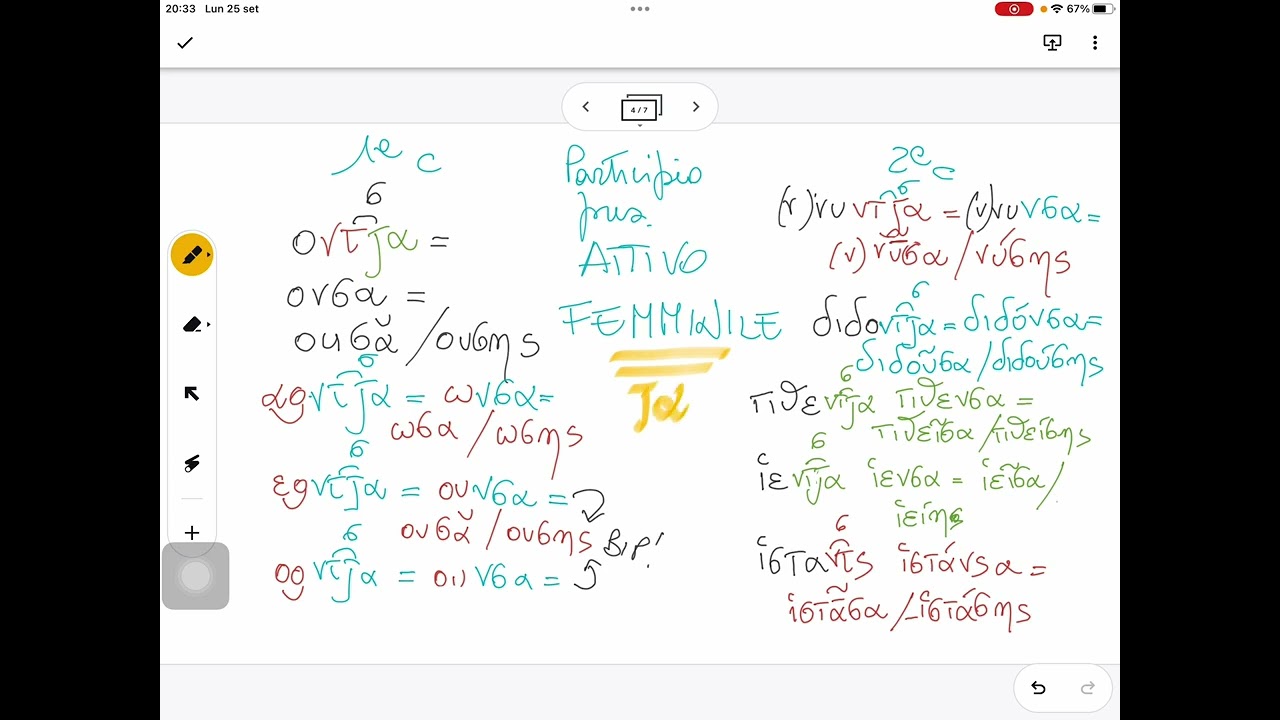 20:33 Lun 25 set
67%
4 / 7
1e c
σ
οντjα =
ονσα =
ουσᾰ / ουσης
σ
αοντjα = ωνσα =
ωσα / ωσης
σ
εοντjα = ουνσα =
ουσᾰ / ουσης
BIP!
σ
οοντjα = ουνσα =
Participio
ATTIVO
FEMMINILE
jα
2e c
σ
(ν)νυντjα = (ν)νυνσα =
(ν)νῦσα / νύσης
σ
διδοντjα = διδόνσα =
διδοῦσα / διδούσης
σ
τιθεντjα τιθενσα =
τιθεῖσα / τιθείσης
σ
ἱεντjα ἱενσα = ἱεῖσα /
σ
ἱσταντς ἱστάνσα =
ἱστᾶσα / ἱστάσης